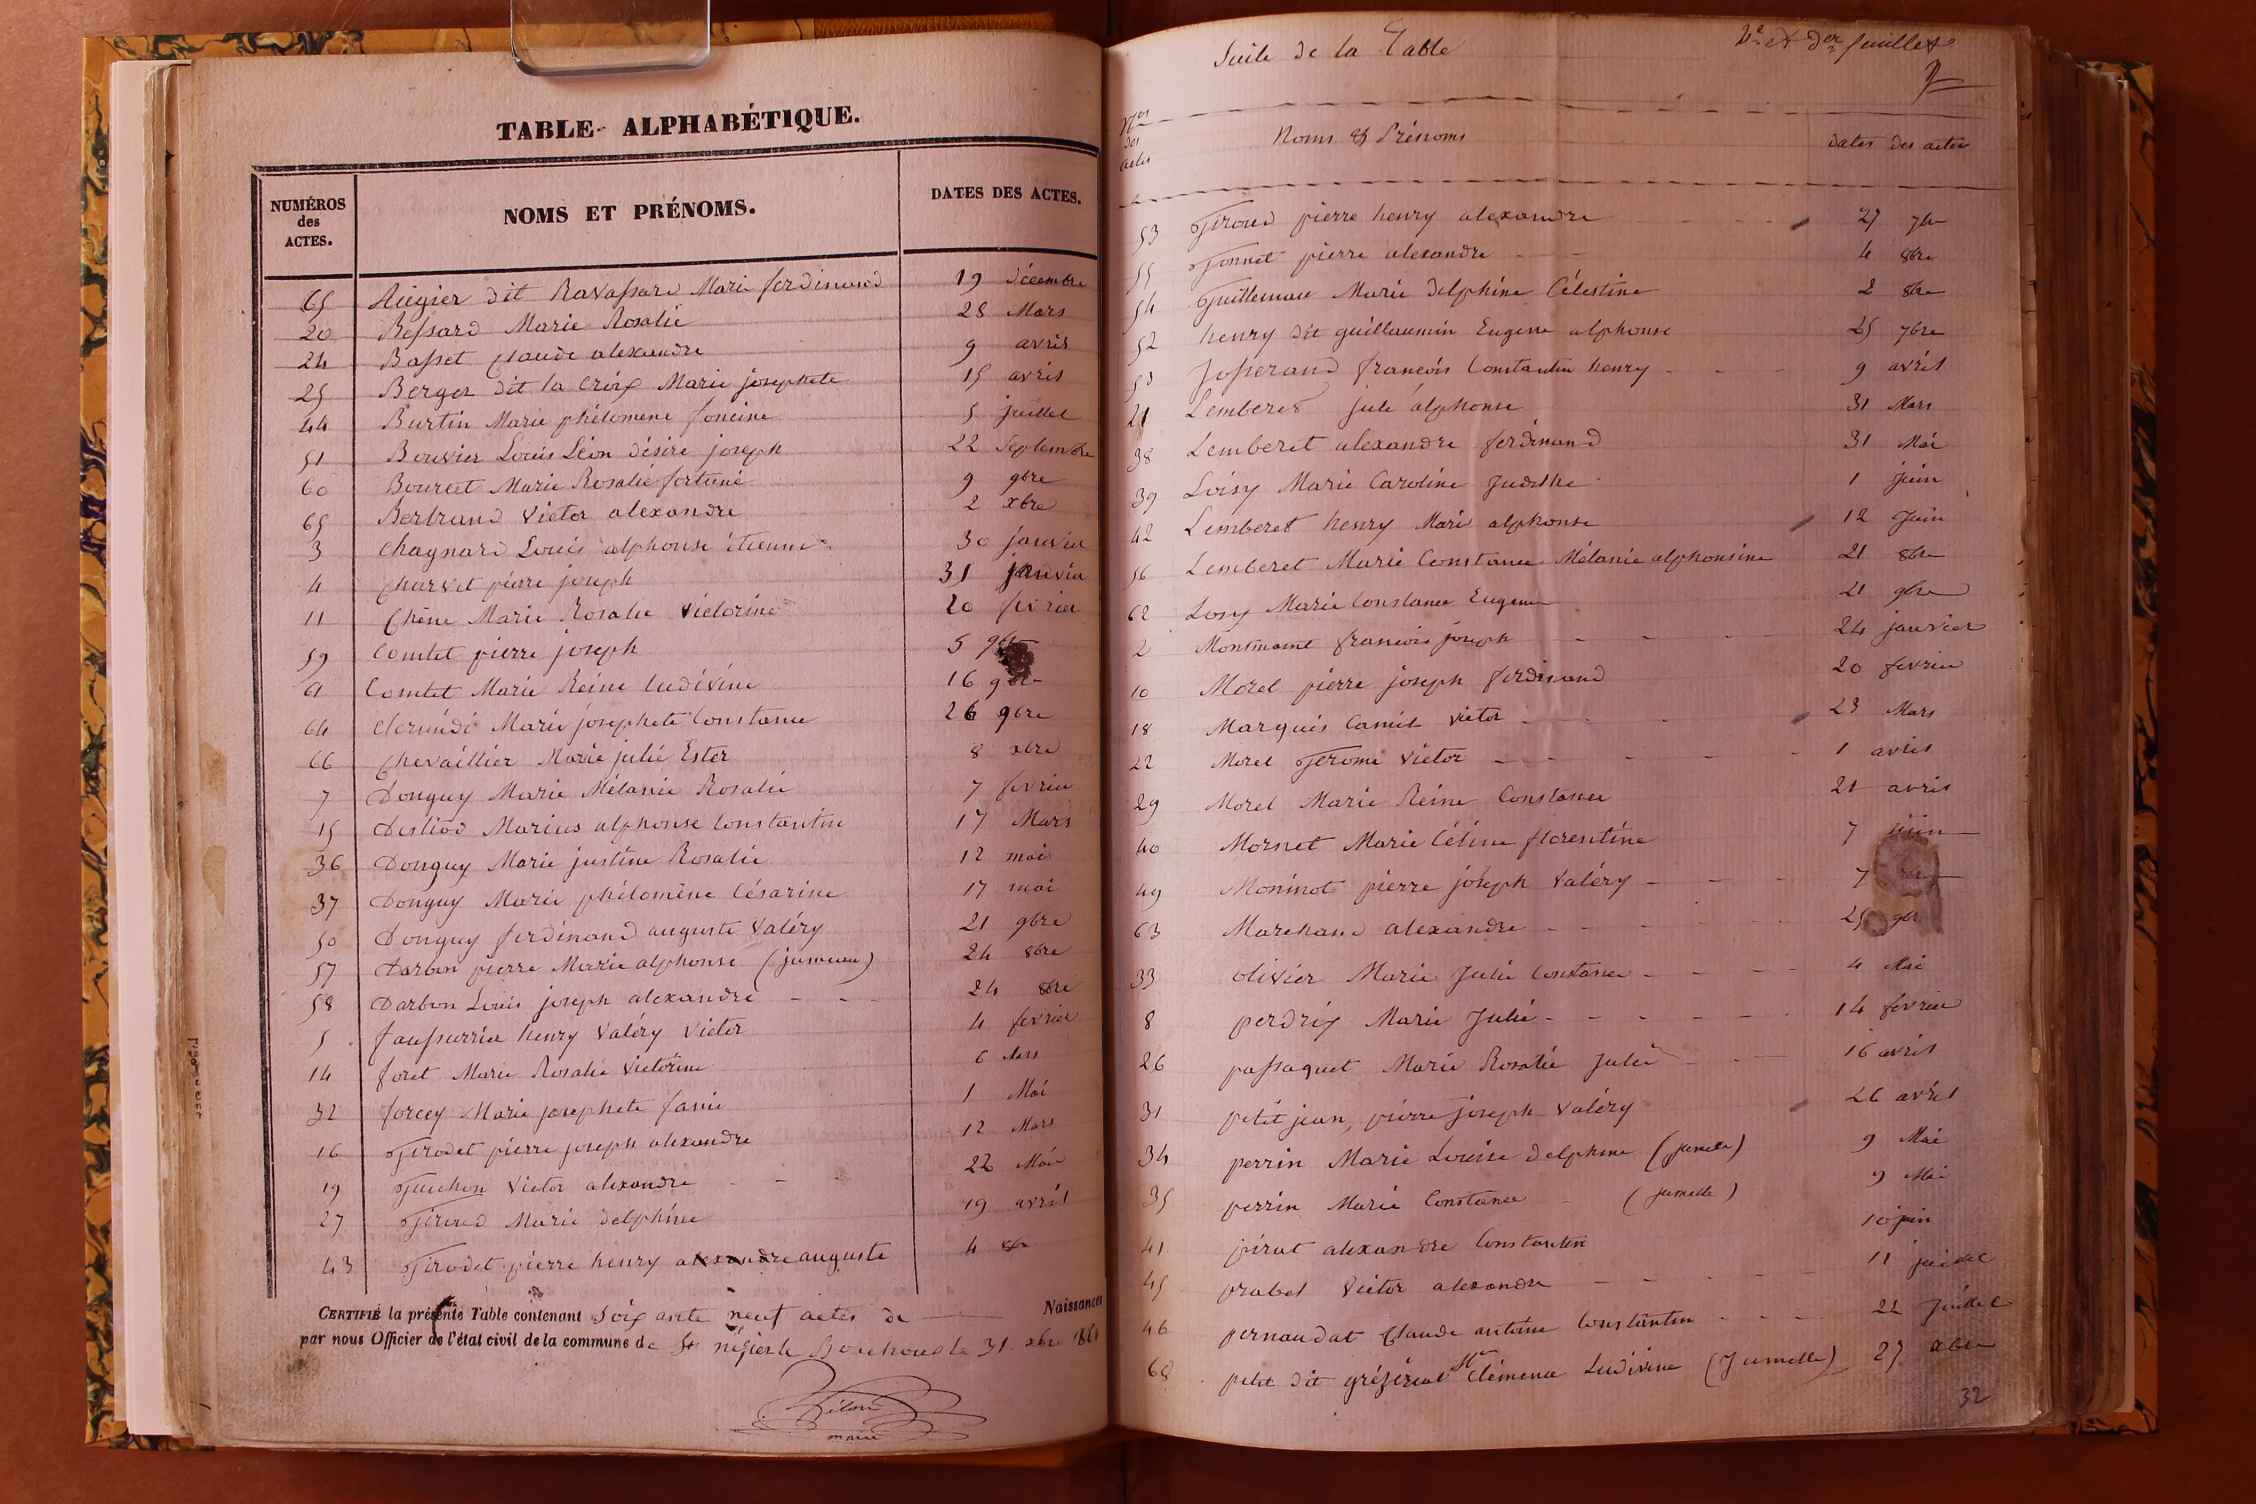 TABLE ALPHABÉTIQUE.
NUMÉROS des ACTES.
NOMS ET PRÉNOMS.
DATES DES ACTES.
65 dit Ravassard Marie ferdinand 19 décembre
20 Bessard Marie Rosalie 28 Mars
24 Basset Claude alexandre 9 avril
25 Berger dit la Croix Marie josephete 15 avril
44 Burtin Marie philomene foncine 5 juillet
51 Bouvier Louis Léon désiré joseph 22 Septembre
60 Bourcet Marie Rosalie fortuné 9 9bre
65 Bertrand victor alexandre 2 xbre
3 Chagnard Louis alphonse étienne 30 janvier
4 Charvet pierre joseph 31 janvier
11 Chêne Marie Rosalie victorine 20 fevrier
59 Comtet pierre joseph 5 9bre
61 Comtet Marie Reine ludivine 16 9bre
64 Marie josephete Constance 26 9bre
66 Chevaillier Marie julie Ester 8 xbre
7 Donguy Marie Mélanie Rosalie 7 fevrier
15 Marius alphonse Constantin 17 Mars
36 Donguy Marie justine Rosalie 12 mai
37 Donguy Marie philomène Césarine 17 mai
50 Donguy ferdinand auguste Valéry 21 9bre
57 Darbon pierre Marie alphonse (jumeau) 24 8bre
58 Darbon Louis joseph alexandre 24 8bre
5 henry Valéry victor 4 fevrier
14 foret Marie Rosalie Victorine 6 Mars
32 forcey Marie josephete fanie 1 Mai
16 Girodet pierre joseph alexandre 12 Mars
19 Guichon victor alexandre 22
27 Giroud Marie delphine 19 avril
43 Girodet pierre henry alexandre auguste 4
CERTIFIÉ la présente Table contenant Soixante neuf actes de Naissances
par nous Officier de l'état civil de la commune de St le 31 xbre
maire
Suite de la Table
2e et der feuillet
Nos des actes
Noms & Prénoms
dates des actes
53 Giroud pierre henry alexandre 27 7bre
55 Gonnet pierre alexandre 4 8bre
54 Guillemau Marie delphine Célestine 2 8bre
52 henry dit guillaumin Eugene alphonse 25 7bre
Josserand françois Constantin henry 9 avril
21 Lemberet jule alphonse 31 Mars
38 Lemberet alexandre ferdinand 31 Mai
39 Loisy Marie Caroline Judithe 1 juin
42 Lemberet henry Marie alphonse 12 Juin
56 Lemberet Marie Constance Mélanie alphonsine 21 8bre
62 Losy Marie Constance Eugene 21 9bre
2 francois joseph 24 janvier
10 Morel pierre joseph ferdinand 20 fevrier
18 Marquis Camil victor 23 Mars
22 Morel Gerome victor 1 avril
29 Morel Marie Reine Constance 21 avril
40 Mornet Marie Céline florentine 7 juin
49 Moninot pierre joseph Valéry 7
63 Marchand alexandre 25 9bre
33 olivier Marie Julie Constance 4 Mai
8 perdrix Marie Julie 14 février
26 passaquet Marie Rosalie Julie 16 avril
31 petit jean, pierre joseph Valéry 26 avril
34 perrin Marie Louise delphine (jumelle) 9 Mai
35 perrin Marie Constance (jumelle) 9 Mai
41 pirat alexandre Constantin 10 juin
45 prabel victor alexandre 11 juillet
46 pernaudat Claude antoine Constantin 22 Juillet
68 petit dit Clémence Ludivine (Jumelle) 27 xbre
32